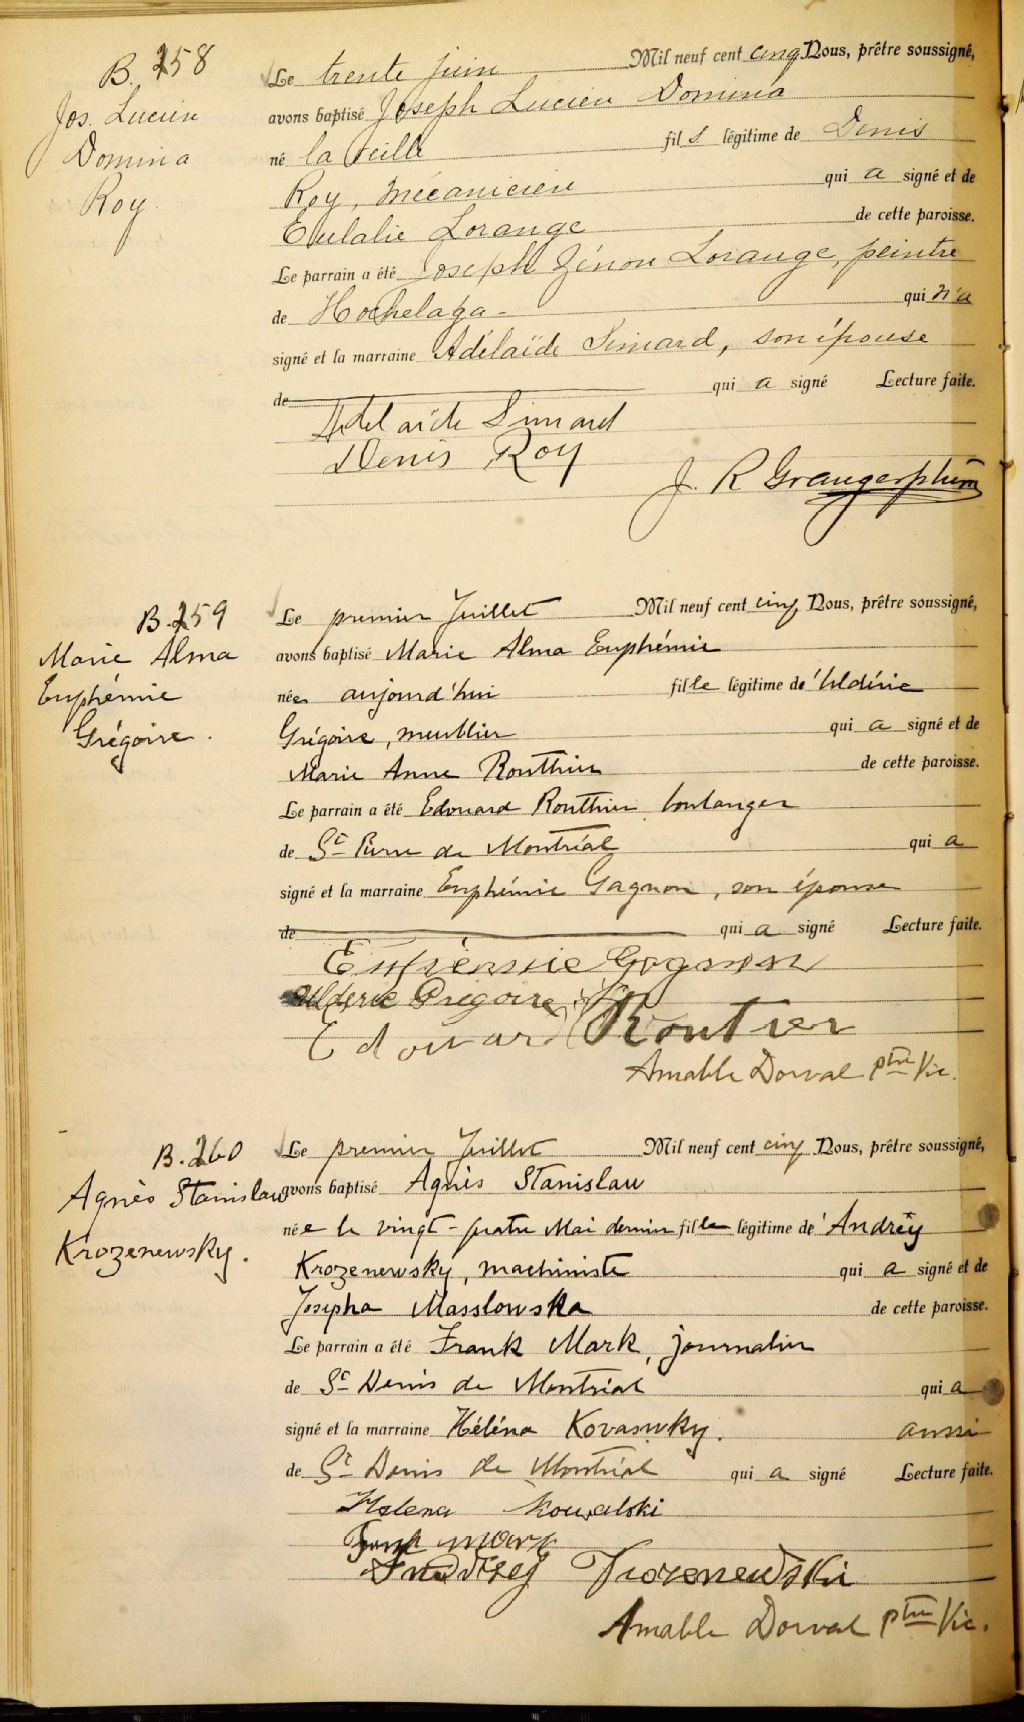 B. 258
Jos. Lucien
Domina
Roy.
Le trente juin Mil neuf cent cinq Nous, prêtre soussigné,
avons baptisé Joseph Lucien Domina
né la veille fils légitime de Denis
Roy, mécanicien qui a signé et de
Eulalie Lorange de cette paroisse.
Le parrain a été Joseph Zénon Lorange, peintre
de Hochelaga - qui n'a
signé et la marraine Adélaïde Simard, son épouse
de qui a signé Lecture faite.
Adelaïde Simard
Denis Roy
J. R Granger
B. 259
Marie Alma
Euphémie
Grégoire.
Le premier Juillet Mil neuf cent cinq Nous, prêtre soussigné,
avons baptisé Marie Alma Euphémie
née aujourd'hui fille légitime d'Uldéric
Grégoire, meublier qui a signé et de
Marie Anne Routhier de cette paroisse.
Le parrain a été Edouard Routhier, boulanger
de St Pierre de Montréal qui a
signé et la marraine Euphémie Gagnon, son épouse
de qui a signé Lecture faite.
Gagnon
Uldéric Grégoire
Edouard Routier
Amable Dorval ptre Vic.
B. 260
Agnès Stanislaw
Krozenewsky.
Le premier Juillet Mil neuf cent cinq Nous, prêtre soussigné,
avons baptisé Agnès Stanislaw
née le vingt-quatre Mai dernier fille légitime d'Andrëy
Krozenewsky, machiniste qui a signé et de
Josepha Masslowska de cette paroisse.
Le parrain a été Frank Mark, journalier
de St Denis de Montréal qui a
signé et la marraine Héléna Kovaswky. aussi
de St Denis de Montréal qui a signé Lecture faite.
Helena Kowalski
Frank Mark
Amable Dorval ptre Vic.